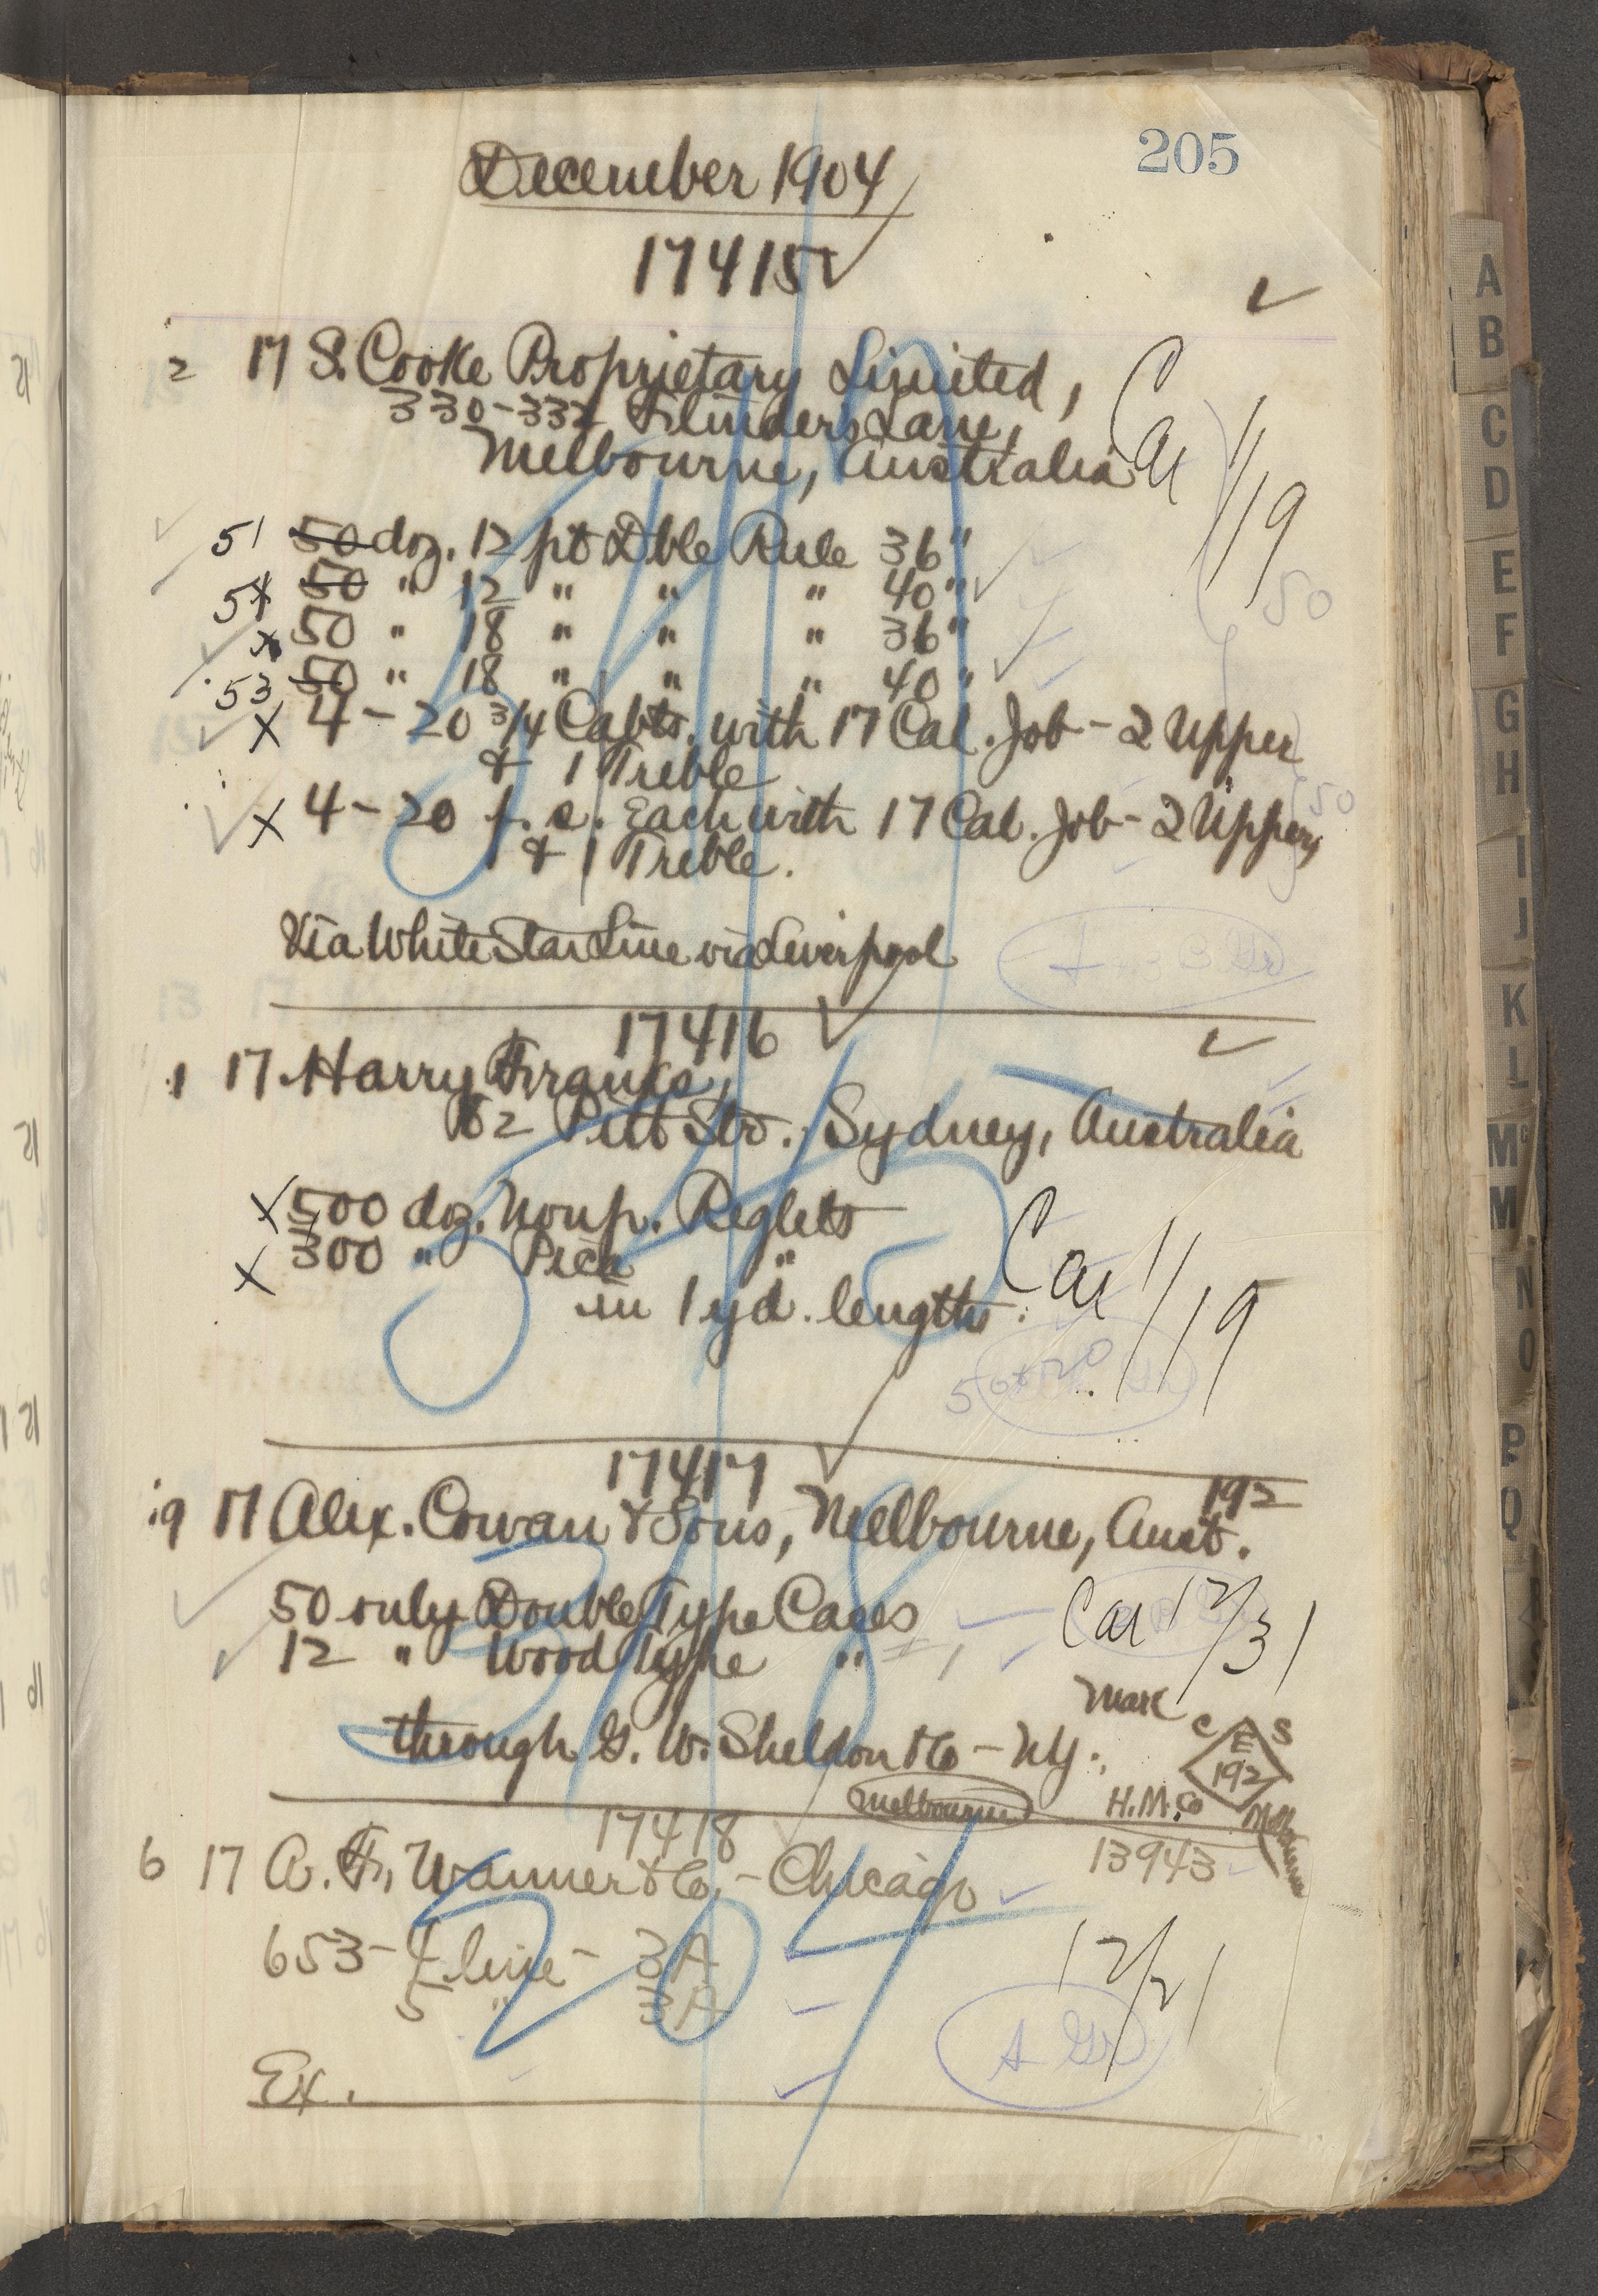 205
December 1904
17415
2 17 S. Cooke Proprietary Limited,
330-332 Flinders Lane,
Melbourne, Australia
Car 1/19
51 50 doz. 12 pt Dble Rule 36"
54 50 " 12 " " " 40"
x 50 " 18 " " " 36"
53 50 " 18 " " " 40"
x 4-20 3/4 Cabts. with 17 Cal. Job - 2 Upper
& 1 Treble
x 4-20 f. s. Each with 17 Cal. Job - 2 Upper,
& 1 Treble.
50
50
Via White Star Line via Liverpool
17416
1 17 Harry Franks,
82 Pitt Str. Sydney, Australia
x 500 doz. Nonp. Reglets
x 300 " Pica "
in 1 yd. lengths.
Car 1/19
17417
192
19 17 Alex. Cowan & Sons, Melbourne, Aust.
50 only Double Type Cases
12 " Wood Type "
Car 12/31
through G. W. Sheldon & Co - NY.
Mark C E S
192
Melbourne
Melbourne
H.M.Co
13943
17418
6 17 A. F. Wanner & Co. - Chicago
653 - 4 line - 3A
5 " 3A
12/21
A Gr
Ex.
204
A
B
C
D
E
F
G
H
I
J
K
L
Mc
M
N
O
P
Q